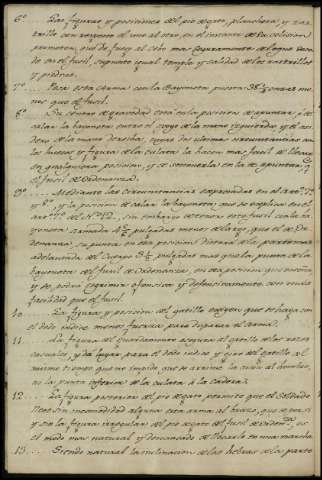 6º Las figuras y posiciones del pie de gato, planchera, y ras-
trillo con respeto del uno al otro, en el instante de su colision
permiten, que de fuego al cebo mas seguramente de lo que suce-
de en el fusil, supuesto igual temple y calidad de los rastrillos
y piedras.
7º Pesa esta Arma con la Bayoneta puesta 38½ onzas me-
nos que el fusil.
8º Su centro de gravedad esta en la posicion de apuntar, y de
calar la bayoneta entre el apoyo de la mano izquierda y el
de la mano derecha, cuyas dos ultimas circunstancias con
las luces y figura de la culata la hacen mas facil de llevar
en qualquiera posicion, y de sostenerla en la de apuntar q.
el fusil de ordenanza.
9º Mediante las circunstancias expresadas en el art.º 7º
y 8º, y la posicion de calar la bayoneta, que se explica en el
art.º del Nº 2, sin embargo de tener este fusil con la ba-
yoneta armada pulgadas menos de largo, que el de Or-
denanza, su punta en esta posicion distará de la parte mas
adelantada del Cuerpo pulgadas mas que la punta de la
bayoneta del fusil de Ordenanza, en su posicion que
y se podra esgrimir ofensiva y defensivamente con mas
facilidad que el fusil.
10. La figura y posicion del gatillo exigen que se haga con
el dedo indice menos fuerza para disparar el Arma.
11. La figura del guardamonte asegura al gatillo de los
casuales, y da lugar para el dedo indice y giro del gatillo al
mismo tiempo que no impide que se arrime la caxa al hombro,
ni la punta inferior de la culata á la cadera.
12. La figura posterior del pie de gato permite que el Soldado
lleve sin incomodidad alguna esta arma al brazo, que
y sin la figura irregular del pie de gato del fusil de ordza, es
el modo mas natural y descansado de llevarlo en una marcha.
13. Siendo natural la inclinacion de las hebras de la parte